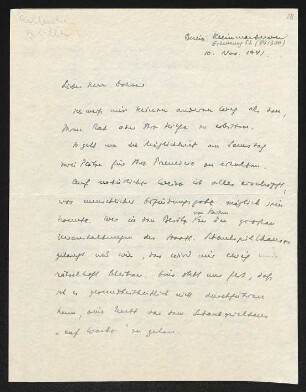 Berlin Kleinmachnow
10. Nov. 1941.
Lieber Herr
Ich weiß mir keinen anderen Weg als den,
Ihren Rat oder Ihre Hilfe zu erbitten.
Es geht um die Möglichkeit am Samstag
zwei Plätze für Ihre Premiere zu erhalten.
Auf natürlichem Weise ist alles erschöpft,
was menschlicher Erfindungsgabe möglich sein
konnte. Wer in den Besitz von Karten für die großen
Veranstaltungen des Staatl. Schauspielhauses
gelangt und wie, das wird mir ewig ein
rätselhaft bleiben. Eins steht nur fest, daß
ich es gesundheitlich nicht durchführen
kann, eine Nacht vor dem Schauspielhaus
"auf Wache" zu gehen.